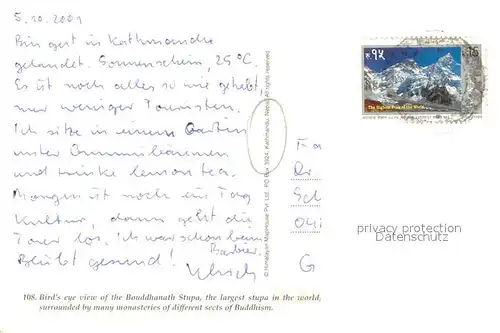 5.10.2001
Bin gut in Kathmandu
gelandet. Sonnenschein, 25°C.
Es ist noch alles so wie gehabt,
nur weniger Touristen.
Ich sitze in einem Garten
unter Gummibäumen
und trinke lemon tea.
Morgen ist noch ein Tag
Kultur, dann geht die
Tour los. Ich war schon beim
Barbier.
Bleibt gesund! Ulrich
Fa
Sch
G
© Himalayan MapHouse Pvt. Ltd. PO Box 3924, Kathmandu, Nepal. All rights reserved
रु. १५
The Highest Peak of the World
privacy protection
Datenschutz
108. Bird's eye view of the Bouddhanath Stupa, the largest stupa in the world,
surrounded by many monasteries of different sects of Buddhism.